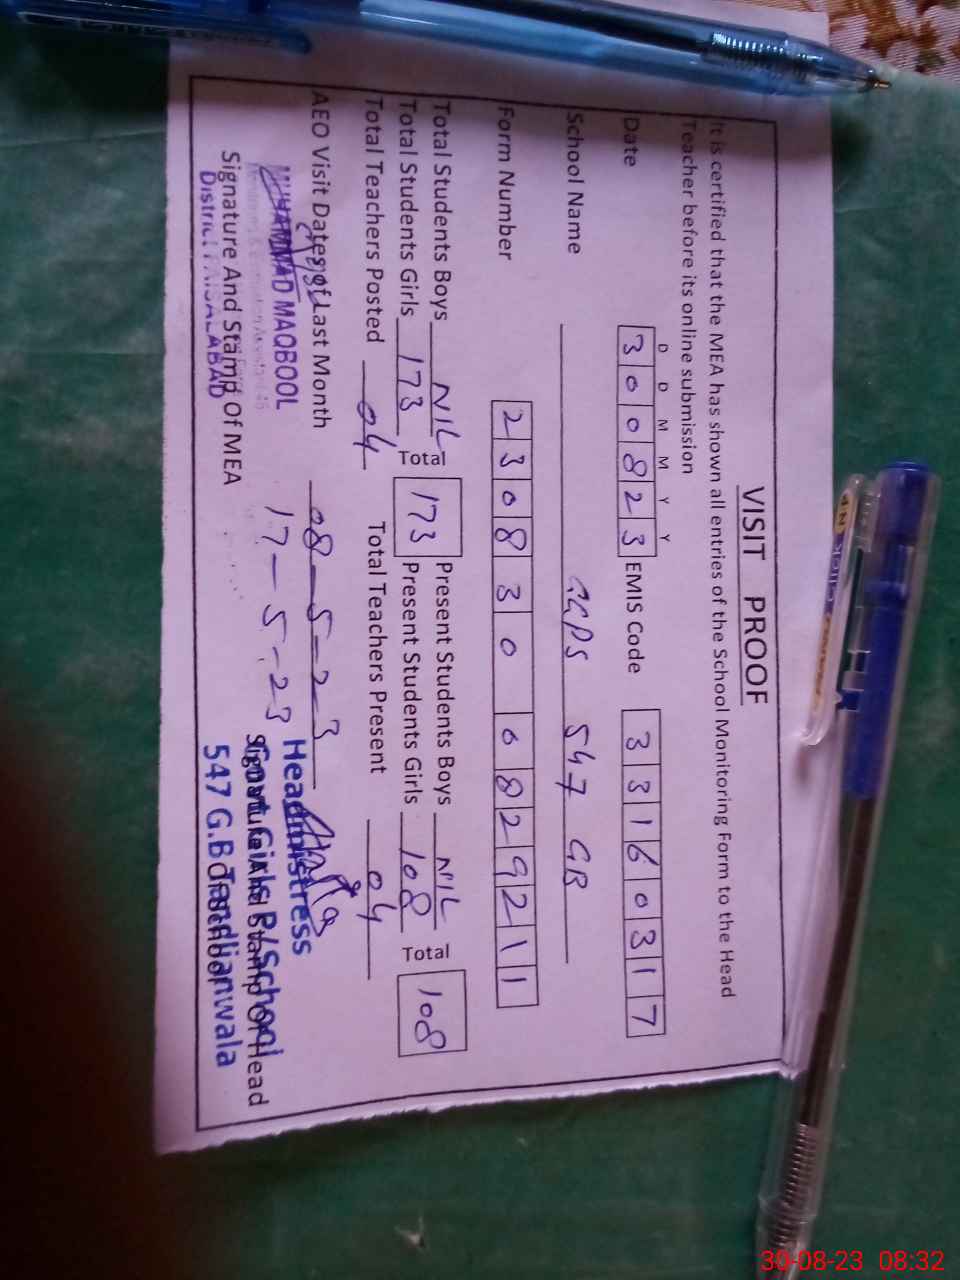 VISIT PROOF
It is certified that the MEA has shown all entries of the School Monitoring Form to the Head
Teacher before its online submission
D D M M Y Y
Date 3 0 0 8 2 3 EMIS Code 3 3 1 6 0 3 1 7
School Name GGPS 547 GB
Form Number 2 3 0 8 3 0 0 8 2 9 2 1 1
Total Students Boys NIL Present Students Boys NIL
Total Students Girls 173 Total 173 Present Students Girls 108 Total 108
Total Teachers Posted 04 Total Teachers Present 04
AEO Visit Dates of Last Month 08-5-23
17-5-23
MUHAMMAD MAQBOOL
District FAISALABAD
Signature And Stamp Of MEA
Headmistress
Govt. Girls P/School
547 G.B Tandlianwala
Signature And Stamp Of Head
Of School
30-08-23 08:32